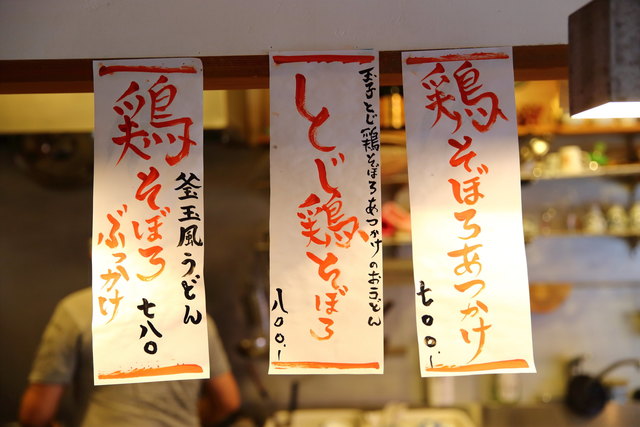 鶏そぼろあつかけ
七〇〇.-
玉子とじ鶏そぼろあつかけのおうどん
しとじ鶏そぼろ
八〇〇.-
釜玉風うどん
鶏そぼろ
ぶっかけ
七八〇